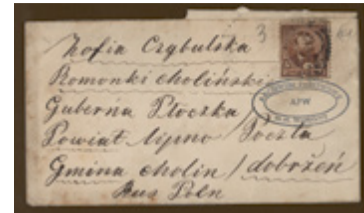 Zofia Czybulska 3
Romonki choliński
Guberńa Płoczka
APW
Powiat lipno / Poczta
Gmina cholin / dobrzeń
Rus Poln